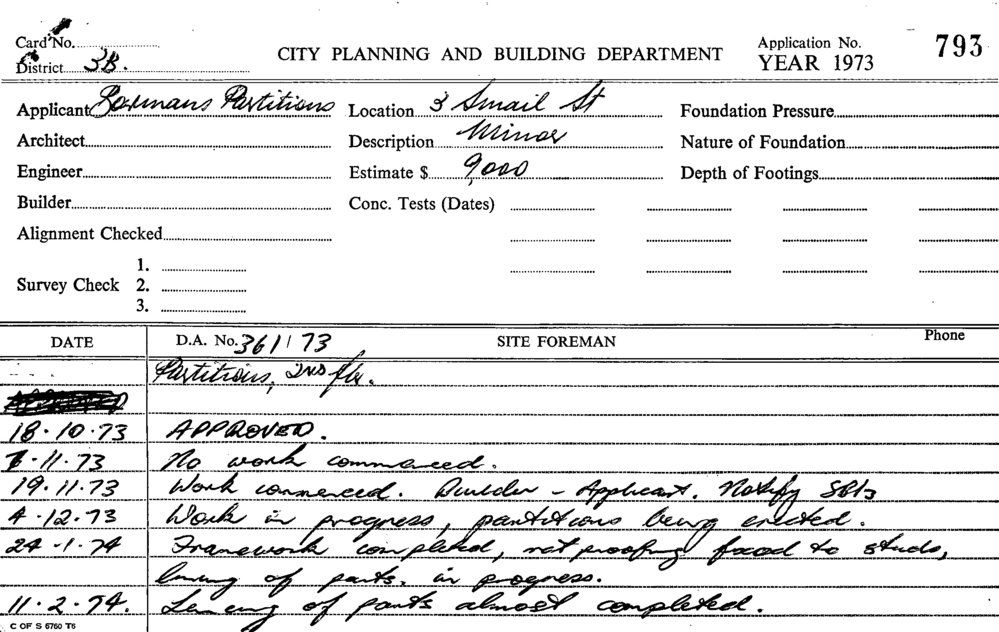 Card No.
District 3B.
CITY PLANNING AND BUILDING DEPARTMENT
Application No. 793
YEAR 1973
Applicant Formans Partitions
Location 3 Smail St
Foundation Pressure
Architect
Description Minor
Nature of Foundation
Engineer
Estimate $ 9,000
Depth of Footings
Builder
Conc. Tests (Dates)
Alignment Checked
Survey Check
1.
2.
3.
DATE
D.A. No. 361/73
SITE FOREMAN
Phone
Partitions, 2nd flr.
18.10.73 APPROVED.
7.11.73 No work commenced.
19.11.73 Work commenced. Builder - Applicant. Notify SBI3
4.12.73 Work in progress, partitions being erected.
24.1.74 Framework completed, rat proofing fixed to studs,
lining of parts. in progress.
11.2.74. Lining of parts almost completed.
C OF S 6760 T6